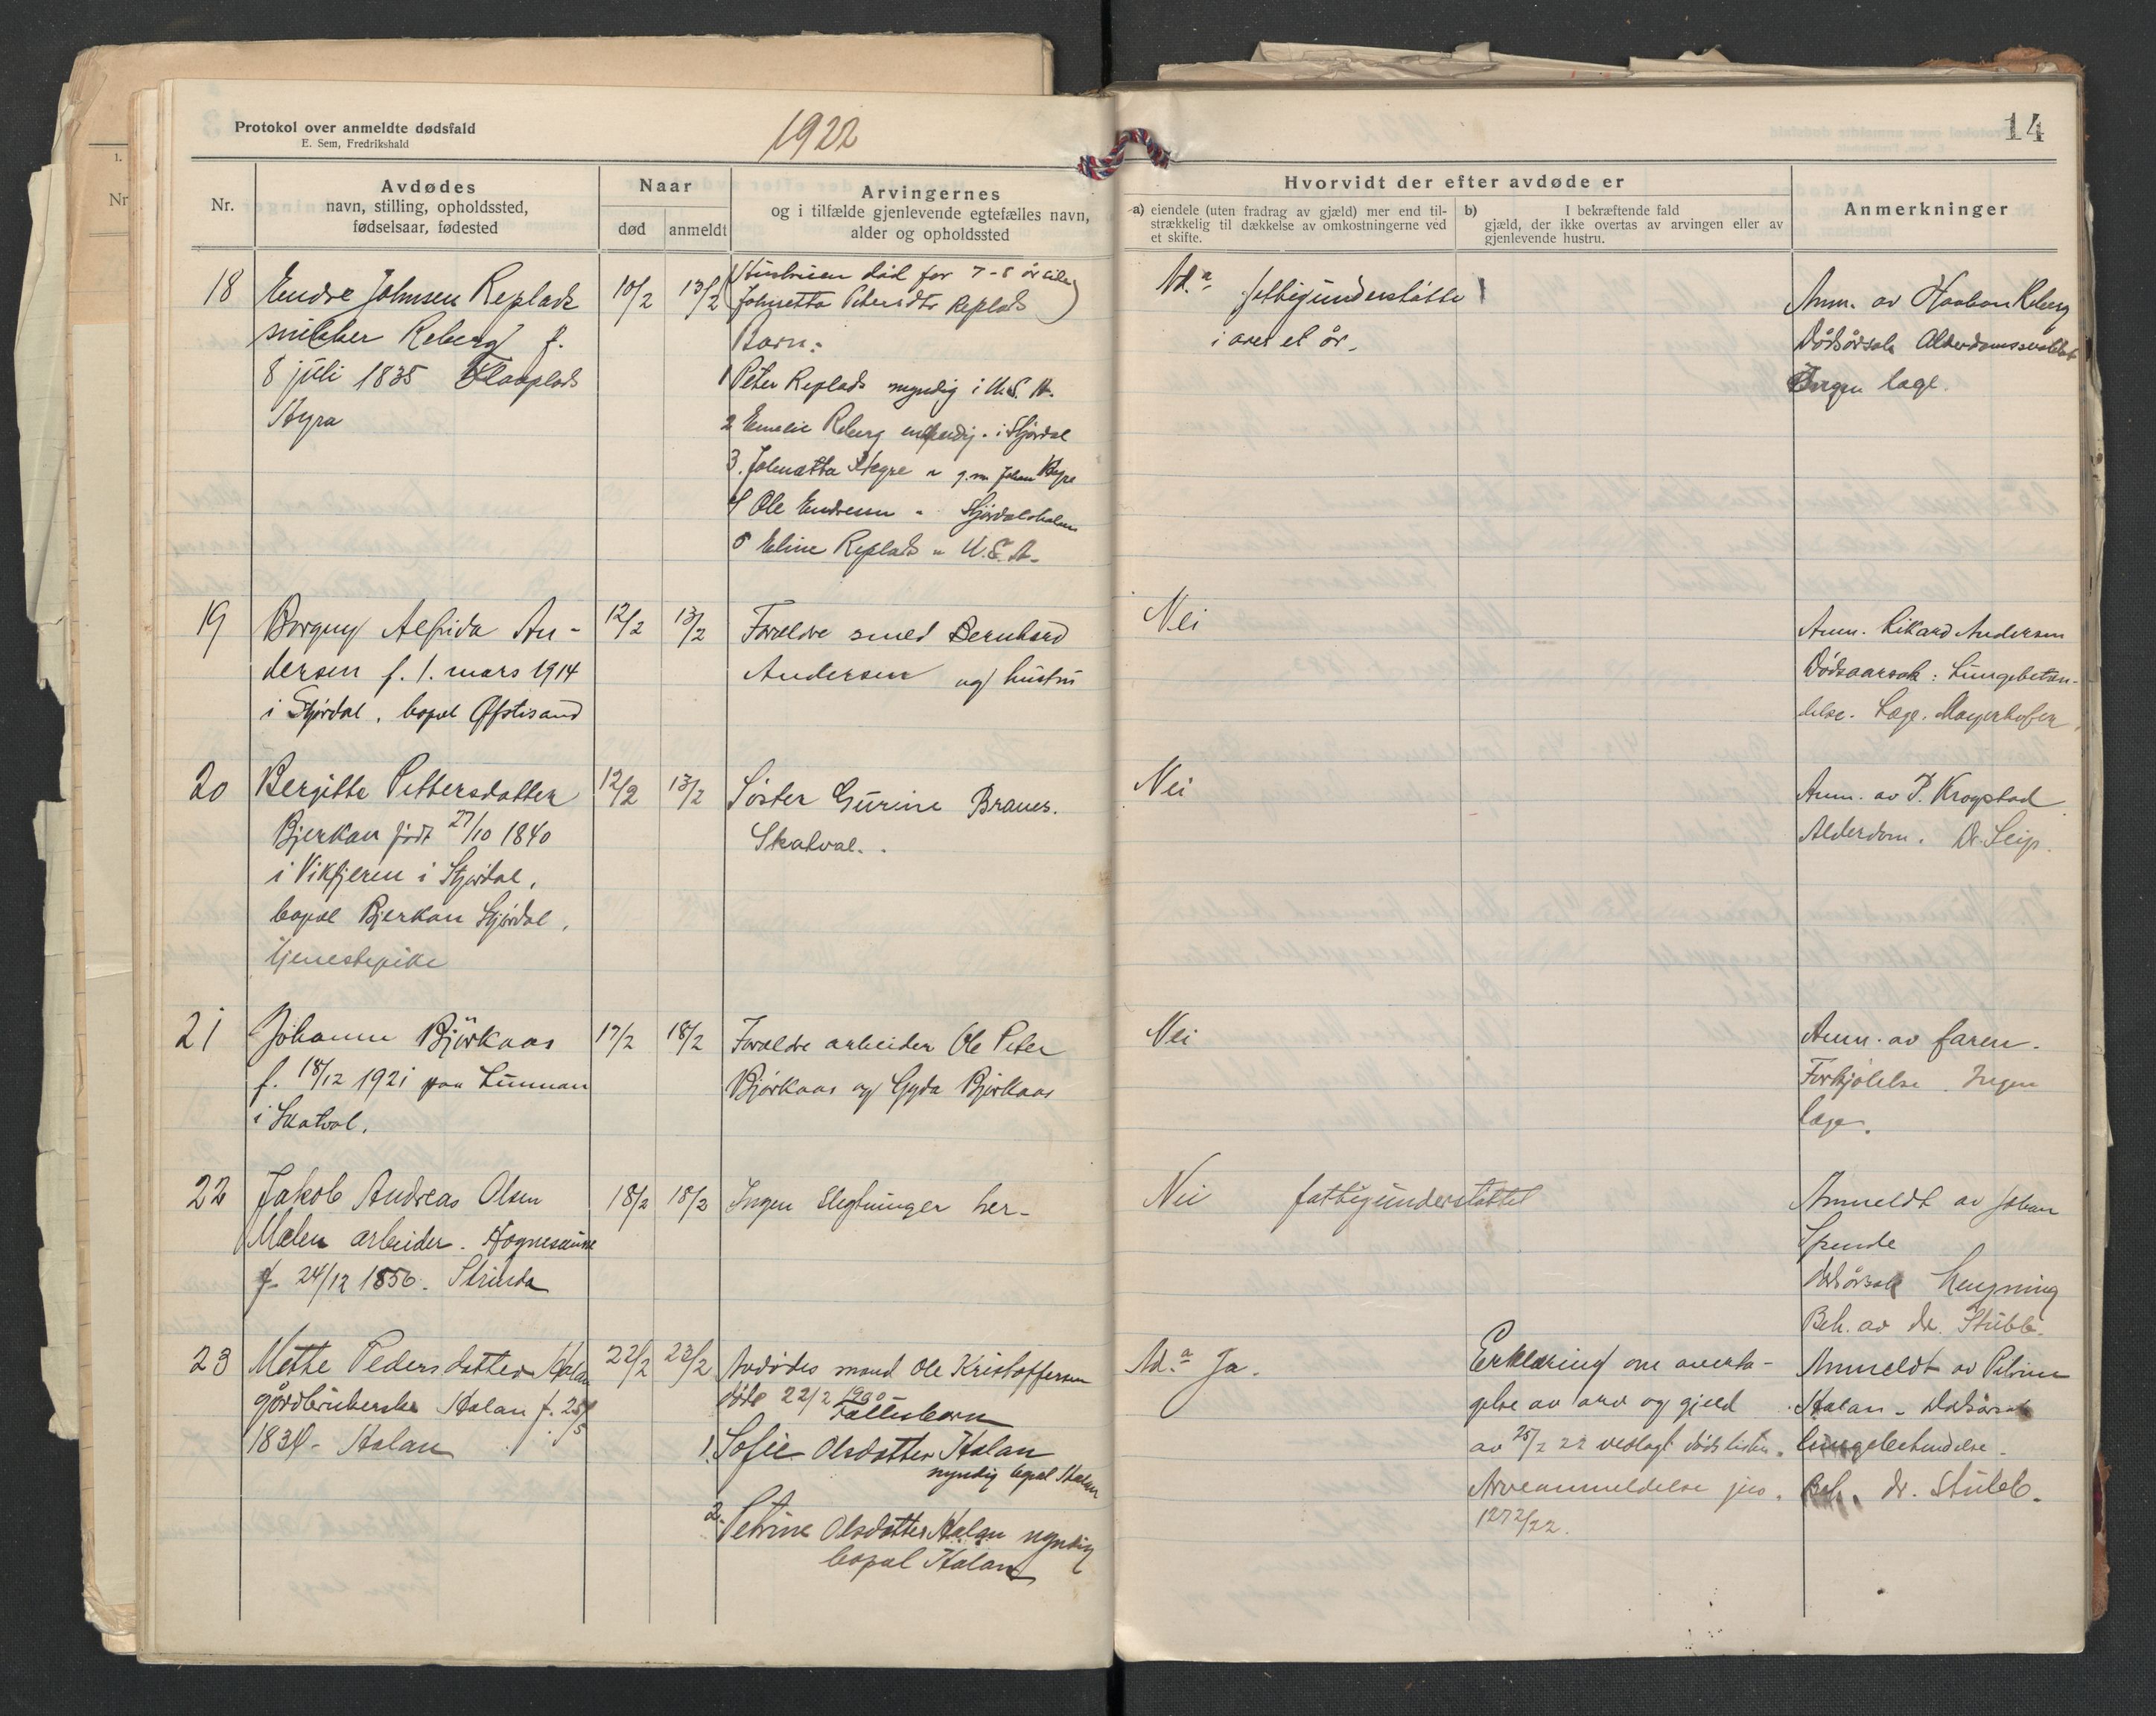 Protokol over anmeldte dødsfald
E. Sem, Fredrikshald
1922
14
Nr.
Avdødes
navn, stilling, opholdssted,
fødselsaar, fødested
Naar
død
anmeldt
Arvingernes
og i tilfælde gjenlevende egtefælles navn,
alder og opholdssted
Hvorvidt der efter avdøde er
a) eiendele (uten fradrag av gjæld) mer end til-
strækkelig til dækkelse av omkostningerne ved
et skifte.
b) I bekræftende fald
gjæld, der ikke overtas av arvingen eller av
gjenlevende hustru.
Anmerkninger
18
Endre Johnsen Replads
snikker Reberg f.
8 juli 1835
Hegra
10/2
13/2
Hustruen død for 7-8 år siden
Johnetta Petersdtr Replads
Barn:
1 Peter Replads myndig i U.S.A.
2 Emelie Reberg i Stjørdal
3. Johnetta Hegre " g.m. Johan Hegre
4 Ole Endresen " Stjørdalshalsen
5 Eline Replads " U.S.A.
Ad. a, fattigunderstøttet
i over et år.
Anm. av Haakon Reberg
Dødsårsak Alderdomssvakhet
Ingen læge.
19
Borgny Alfrida An-
dersen f. 1. mars 1914
i Stjørdal, bopæl Øfstisand
12/2
13/2
Forældre smed Bernhard
Andersen og hustru
Nei
Anm. Rikard Andersen
Dødsaarsak: Lungebetæn-
delse. Læge. Mayerhofer
20
Bergitte Pettersdatter
Bjerkan født 27/10 1840
i Vikfjeren i Stjørdal,
bopæl Bjerkan Stjørdal,
tjenestepike
12/2
13/2
Søster Gurine Branes.
Skatval.
Nei
Anm. av P. Krogstad
Alderdom. Dr. Seip.
21
Johanne Björkaas
f. 18/12 1921 paa Lunnan
i Skatval.
17/2
18/2
Forældre arbeider Ole Peter
Bjørkaas og Gyda Bjørkaas
Nei
Anm. av faren.
Forkjølelse. Ingen
læge.
22
Jakob Andreas Olsen
Mælen arbeider. Hognesaune
f. 24/12 1856. Strinda
18/2
18/2
Ingen slegtninger her.
Nei fattigunderstøttet
Anmeldt av Johan
Spende
Dødsårsak
Beh. av dr. Stubb.
23
Mette Pedersdatter Halan
gårdbrukerske Halan f. 25/5
1834. Halan
22/2
23/2
Avdødes mand Ole Kristoffersen
døde 22/2 1900 -
Fællesbarn
1. Sofie Olsdatter Halan
myndig bopæl Halan
2. Petrine Olsdatter Halan myndig
bopæl Halan
Ad. a Ja.
Erklæring om overta-
gelse av arv og gjeld
av 25/2 22 vedlagt dødslisten.
Arveanmeldelse jno.
1272/22.
Anmeldt av Petrine
Halan - Dødsårsak
lungebetendelse.
Beh. dr. Stubb.